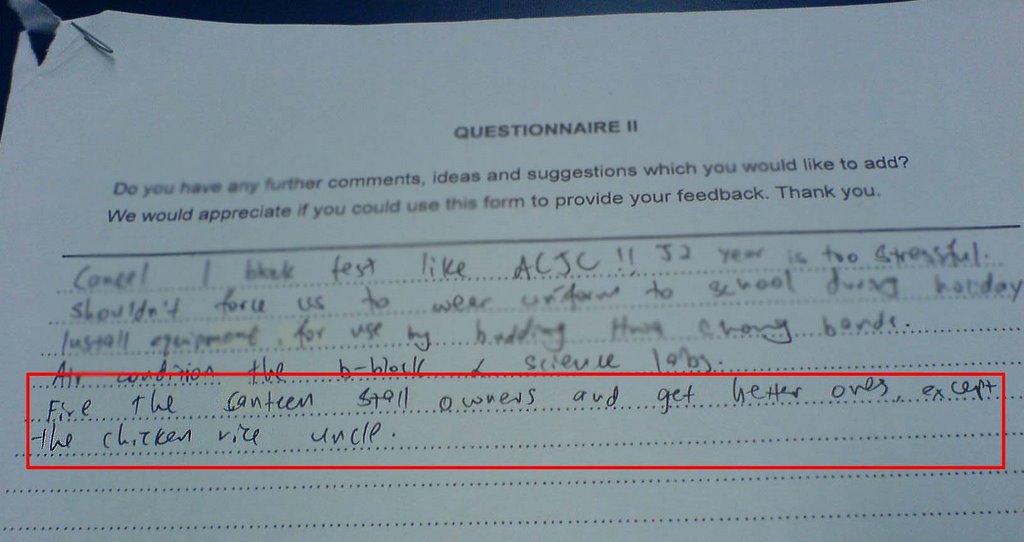 QUESTIONNAIRE II
Do you have any further comments, ideas and suggestions which you would like to add?
We would appreciate if you could use this form to provide your feedback. Thank you.
Cancel 1 block test like ACJC!! J2 year is too stressful.
Shouldn't force us to wear uniform to school during holiday
Install equipment for use by budding Hwa Chong bands.
Air condition the b-block & science labs.
Fire the canteen stall owners and get better ones, except
the chicken rice uncle.